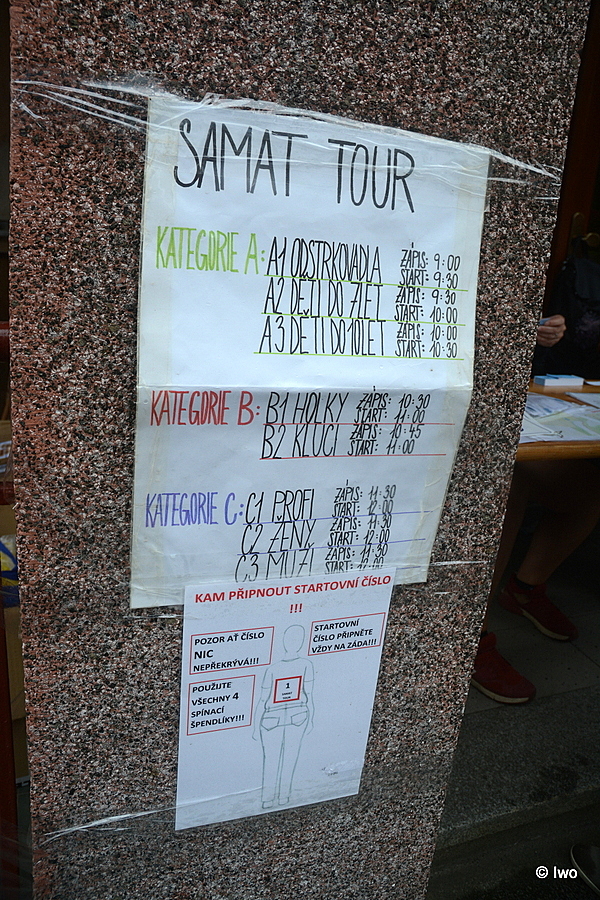 SAMAT TOUR
KATEGORIE A: A1 ODSTRKOVADLA ZÁPIS: 9:00
START: 9:30
A2 DĚTI DO 7LET ZÁPIS: 9:30
START: 10:00
A3 DĚTI DO 10LET ZÁPIS: 10:00
START: 10:30
KATEGORIE B: B1 HOLKY ZÁPIS: 10:30
START: 11:00
B2 KLUCI ZÁPIS: 10:45
START: 11:00
KATEGORIE C: C1 PROFI ZÁPIS: 11:30
START: 12:00
C2 ŽENY ZÁPIS: 11:30
START: 12:00
C3 MUŽI ZÁPIS: 11:30
START: 12:00
KAM PŘIPNOUT STARTOVNÍ ČÍSLO
!!!
POZOR AŤ ČÍSLO
NIC
NEPŘEKRÝVÁ!!!
STARTOVNÍ
ČÍSLO PŘIPNĚTE
VŽDY NA ZÁDA!!!
POUŽIJTE
VŠECHNY 4
SPÍNACÍ
ŠPENDLÍKY!!!
1
SAMAT
TOUR
© Iwo